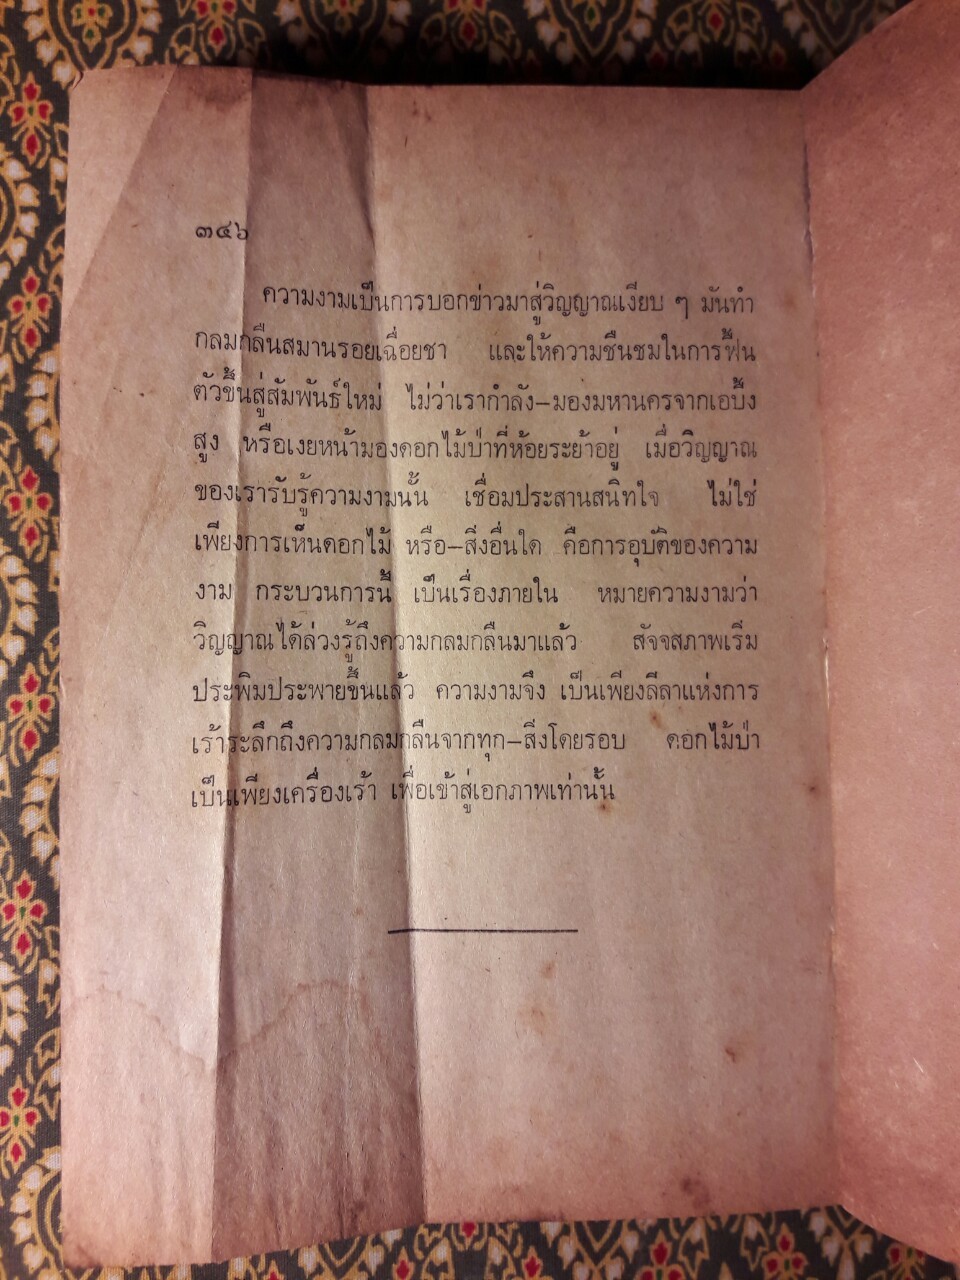 ๓๔๖
ความงามเป็นการบอกข่าวมาสู่วิญญาณเงียบ ๆ มันทำ
กลมกลืนสมานรอยเฉื่อยชา และให้ความชืนชมในการฟื้น
ตัวขึ้นสู่สัมพันธ์ใหม่ ไม่ว่าเรากำลัง–มองมหานครจากเอบึ้ง
สูง หรือเงยหน้ามองดอกไม้ป่าที่ห้อยระย้าอยู่ เมื่อวิญญาณ
ของเรารับรู้ความงามนั้น เชื่อมประสานสนิทใจ ไม่ใช่
เพียงการเห็นดอกไม้ หรือ–สิ่งอื่นใด คือการอุบัติของความ
งาม กระบวนการนี้ เป็นเรื่องภายใน หมายความงามว่า
วิญญาณได้ล่วงรู้ถึงความกลมกลืนมาแล้ว สัจจสภาพเริ่ม
ประพิมประพายขึ้นแล้ว ความงามจึง เป็นเพียงลีลาแห่งการ
เร้าระลึกถึงความกลมกลืนจากทุก–สิ่งโดยรอบ ดอกไม้ป่า
เป็นเพียงเครื่องเร้า เพื่อเข้าสู่เอกภาพเท่านั้น